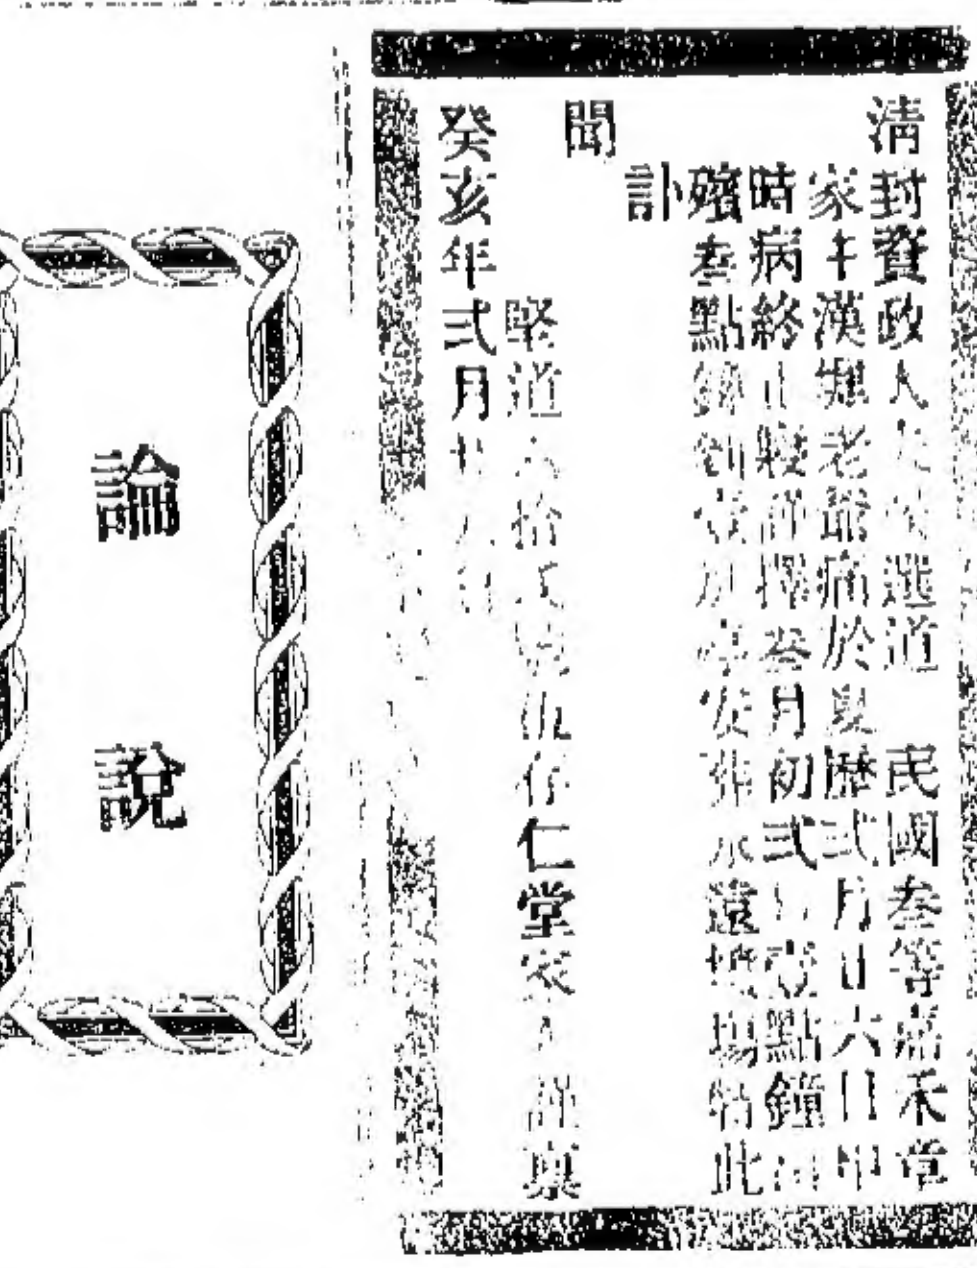 清封資政大夫 選道 民國叁等嘉禾章
家 漢 老爺痛於夏歷弍月廿六日申
時病終 寢 擇叁月初弍 壹點鐘
殯叁點鐘到 亭安葬永遠墳場特此
訃
聞
堅道 拾 號 仁堂家人謹稟
癸亥年弍月廿八日
論說